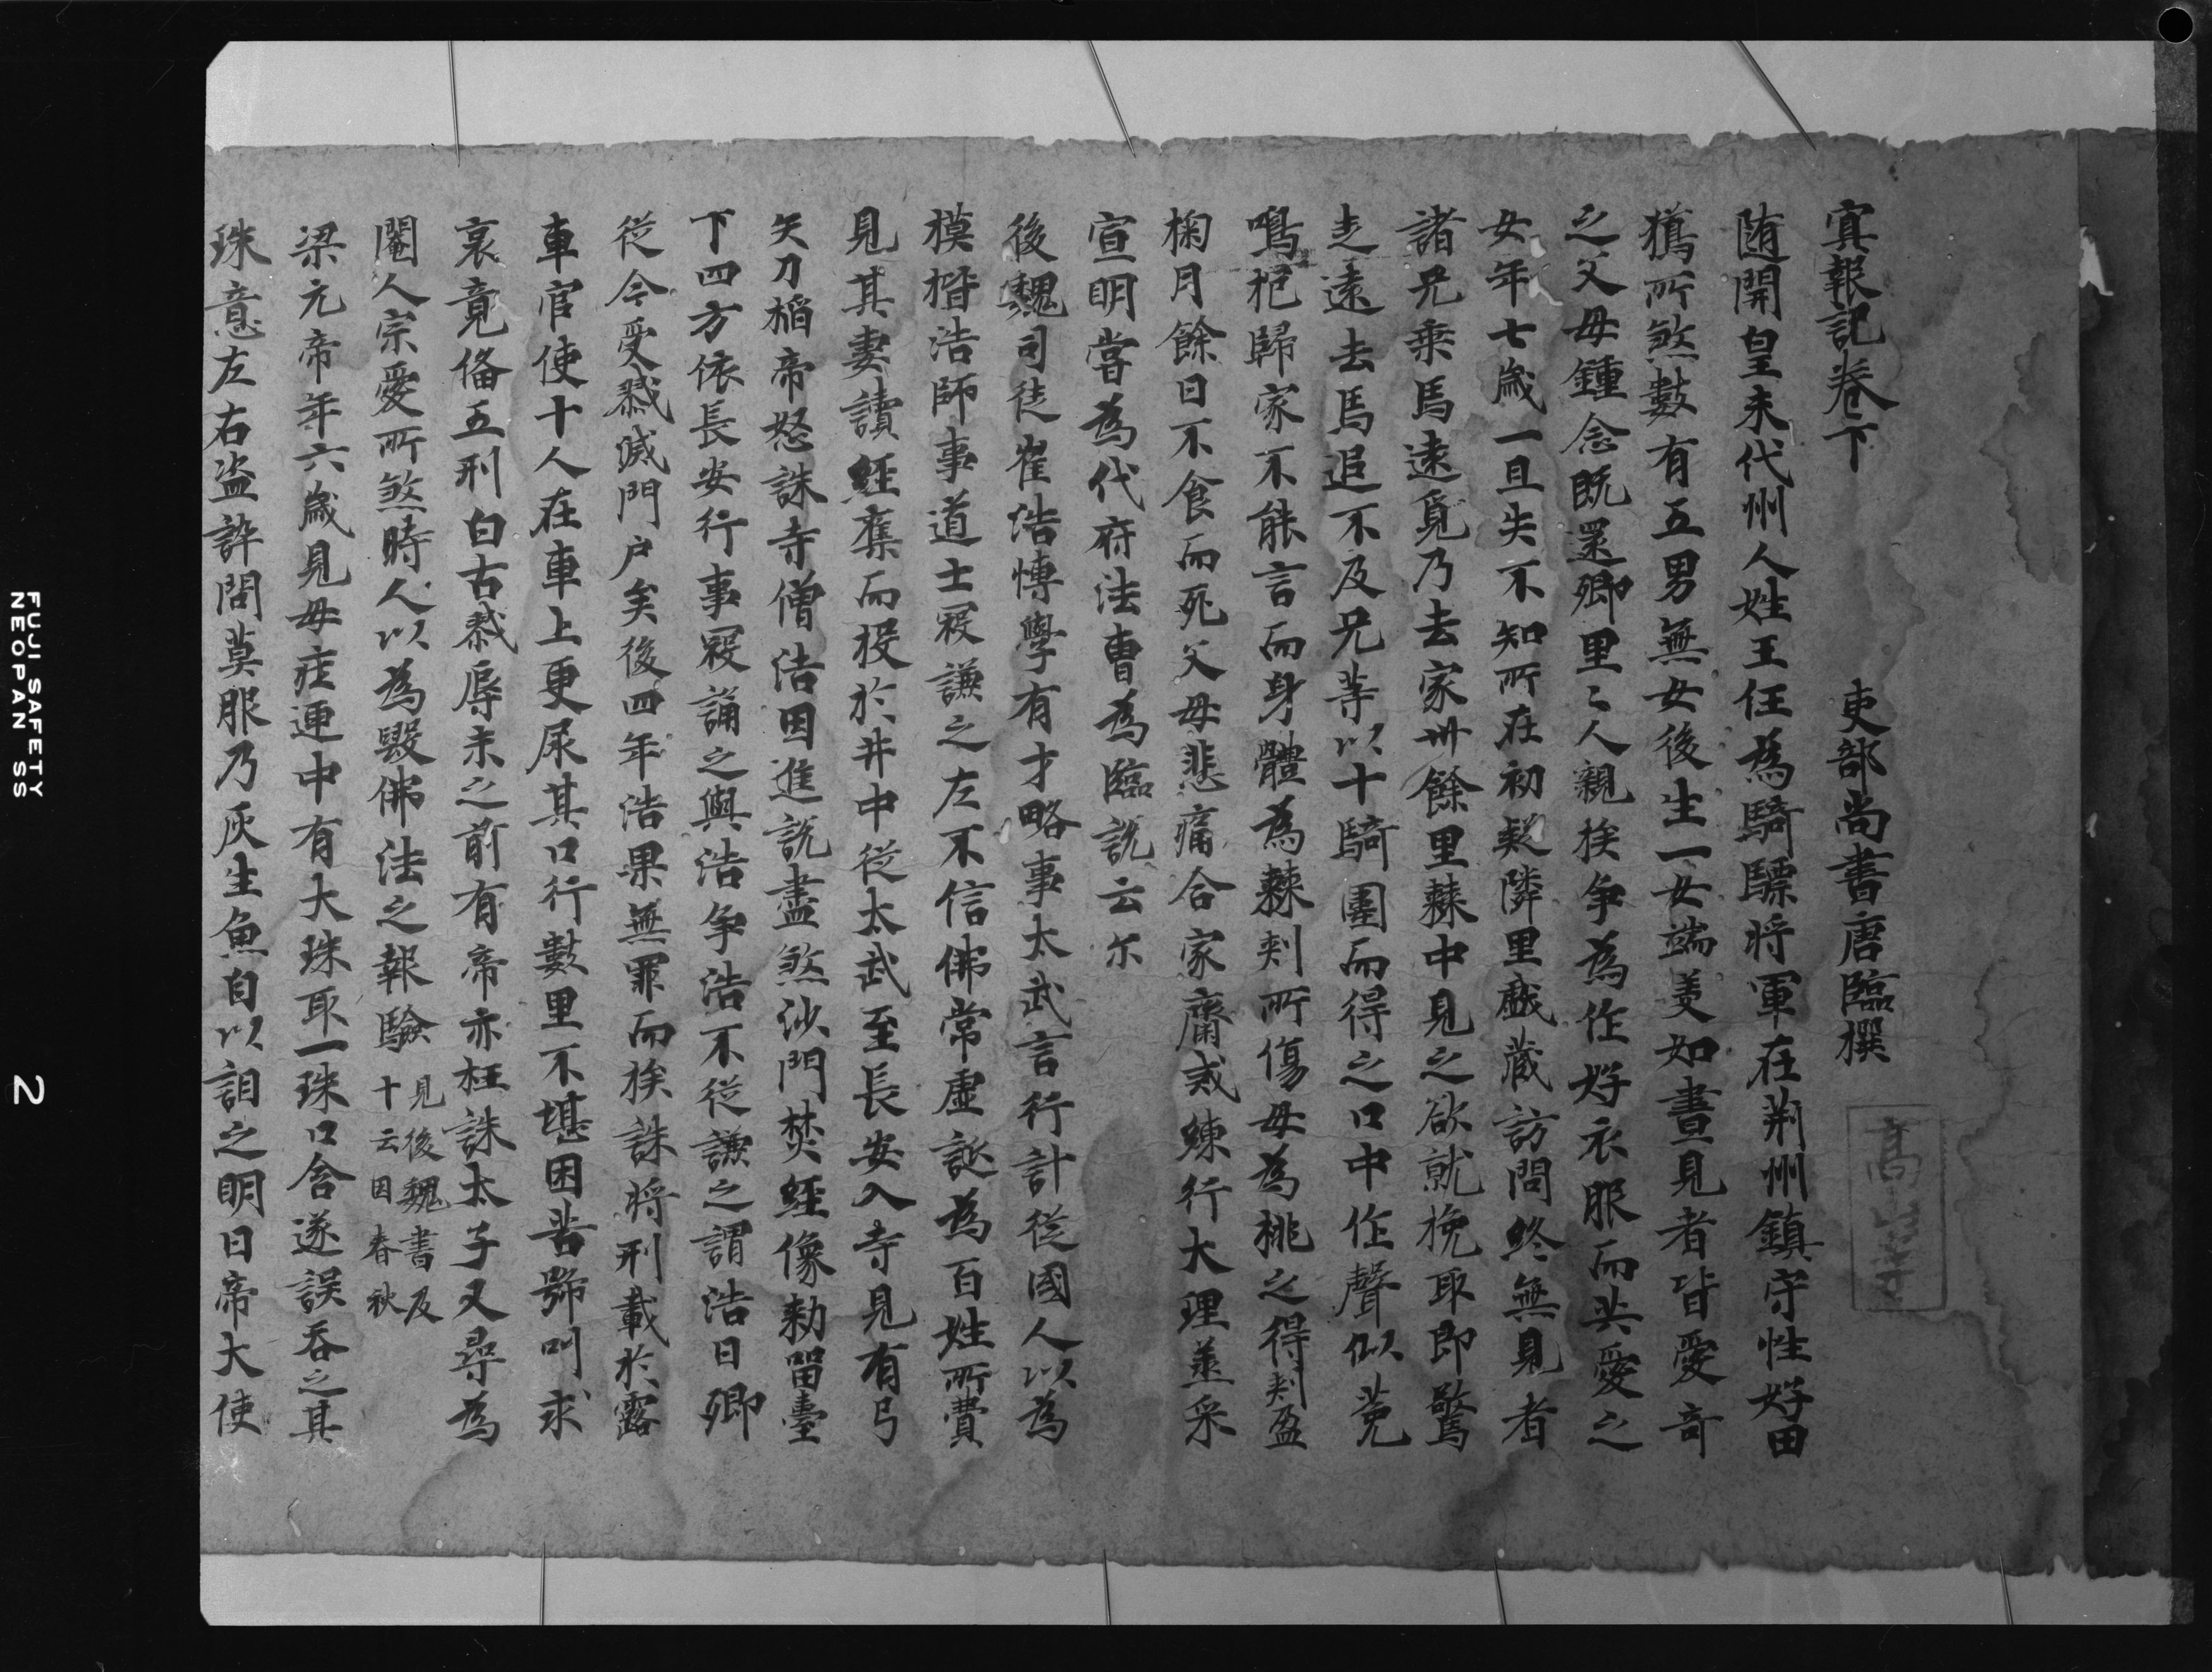 冥報記卷下　吏部尚書唐臨撰
高山寺
随開皇末代州人姓王任為騎驃将軍在荆州鎮守性好田
獦所煞數有五男無女後生一女端美如畫見者皆愛奇
之父母鍾念既還鄉里〻人親挨争為作好衣服而共愛之
女年七歲一旦失不知所在初疑隣里戲藏訪問終無見者
諸兄乗馬遠覓乃去家卅餘里棘中見之欲就挽取即驚
走遠去馬追不及兄等以十騎圍而得之口中作聲似菟
鳴抱歸家不能言而身體為棘刾所傷母為桃之得刾盈
掬月餘日不食而死父母悲痛合家齋戒練行大理丞采
宣明嘗為代府法曹為臨説云尓
後魏司徒崔浩博學有才略事太武言行計從國人以為
模揩浩師事道士寇謙之左不信佛常虚誕為百姓所費
見其妻讀經奪而投於井中從太武至長安入寺見有弓
矢刀矟帝怒誅寺僧浩因進説盡煞沙門焚經像勑留臺
下四方依長安行事寇謙之與浩争浩不從謙之謂浩曰卿
從今受戮滅門户矣後四年浩果無罪而挨誅将刑載於露
車官使十人在車上更尿其口行數里不堪困苦號叫求
哀竟俻五刑自古戮辱未之前有帝亦枉誅太子又尋為
閹人宗愛所煞時人以為毀佛法之報驗 見後魏書及十云国春秋
梁元帝年六歲見母庄運中有大珠取一珠口含遂誤吞之其
珠意左右盗許問莫服乃灰生魚自以詛之明日帝大使
FUJI SAFETY
NEOPAN SS
2